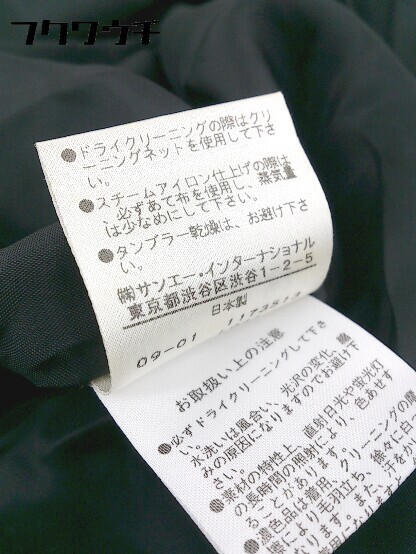 フクワウチ
●ドライクリーニングの際はクリ
ーニングネットを使用して下さ
い。
●スチームアイロン仕上げの際は
必ずあて布を使用し、蒸気量
は少なめにして下さい。
●タンブラー乾燥は、お避け下さ
い。
㈱サンエー・インターナショナル
東京都渋谷区渋谷1-2-5
日本製
09-01 1173513
お取扱い上の注意
●必ずドライクリーニングして下さ
い。水洗いは風合い、光沢の変化、縮
みの原因になりますのでお避け下
さい。
●素材の特性上、直射日光や蛍光灯
の長時間の照射により、色あせす
ることがあります。
●濃色品は着用、クリーニングの摩
により毛羽立ち、徐々に白
ます。また、汗をか